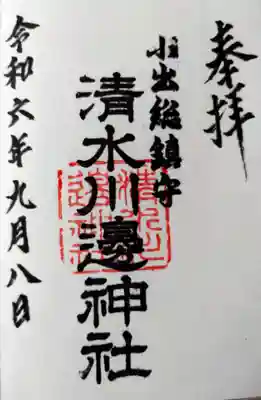 奉拝
小出総鎮守
清水川邊神社
令和六年九月八日